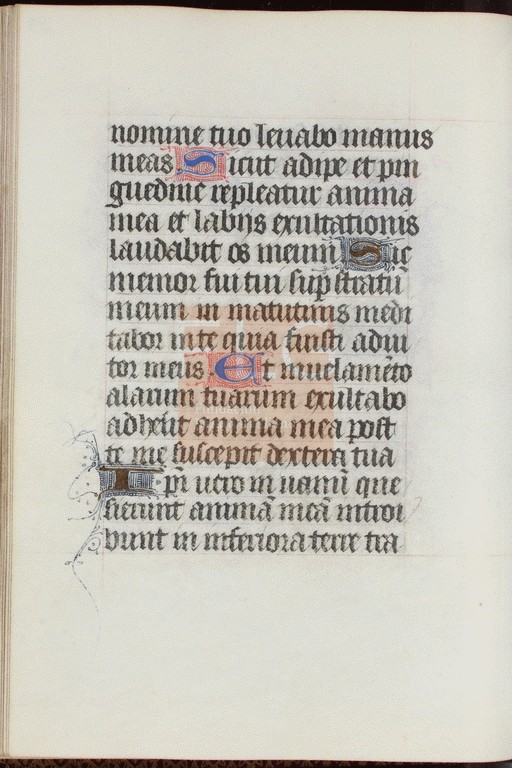 nomine tuo leuabo manus
meas Sicut adipe et pin
guedine repleatur anima
mea et labijs exultationis
laudabit os meum Sic
memor fui tui sup stratū
meum in matutinis medi
tabor in te quia fuisti adiu
tor meus Et in uelamēto
alarum tuarum exultabo
adhesit anima mea post
te me suscepit dextera tua
Ipi uero in uanū que
sierunt animā meā introi
bunt in inferiora terre tra